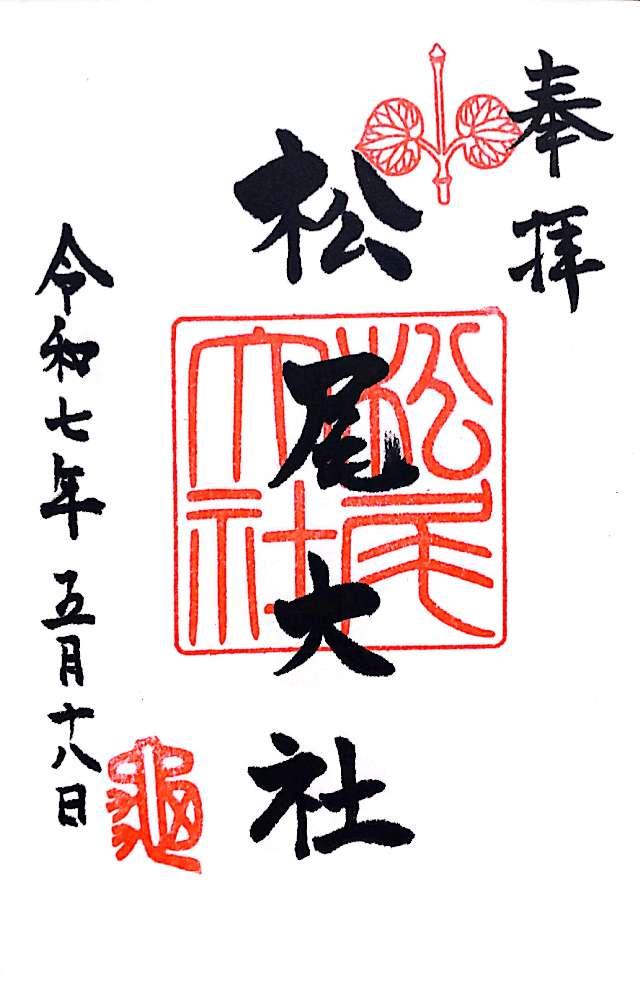 奉拝
松尾大社
松尾大社
令和七年五月十八日
龜